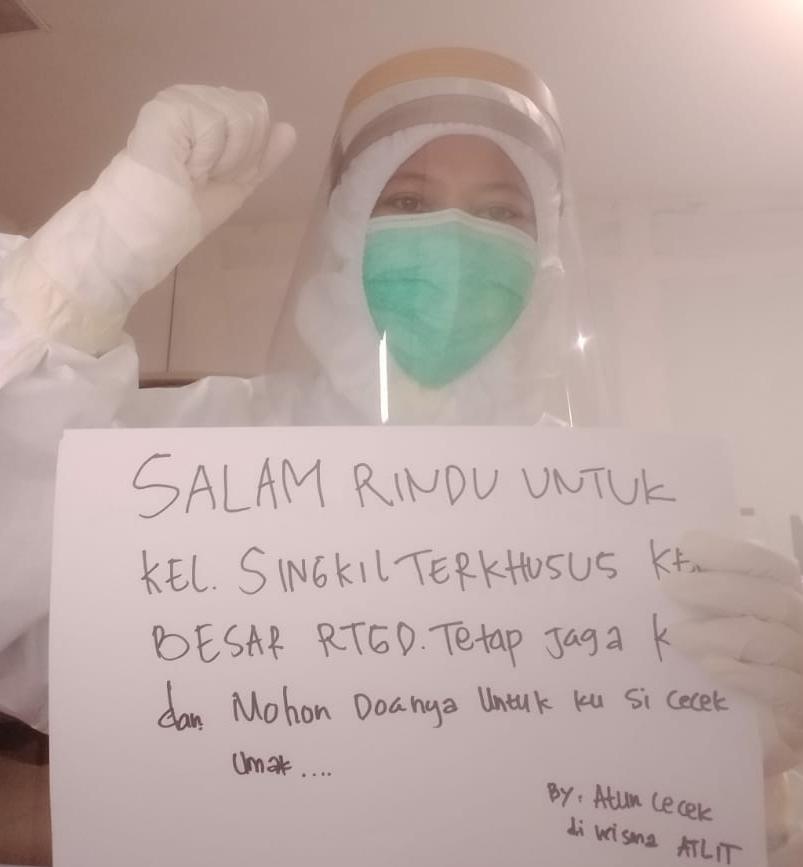 SALAM RINDU UNTUK
KEL. SINGKIL TERKHUSUS
BESAR RTGD. Tetap Jaga
dan Mohon Doanya Untuk ku Si Cecek
Umak....
By. Atun Cecek
di wisma ATLIT